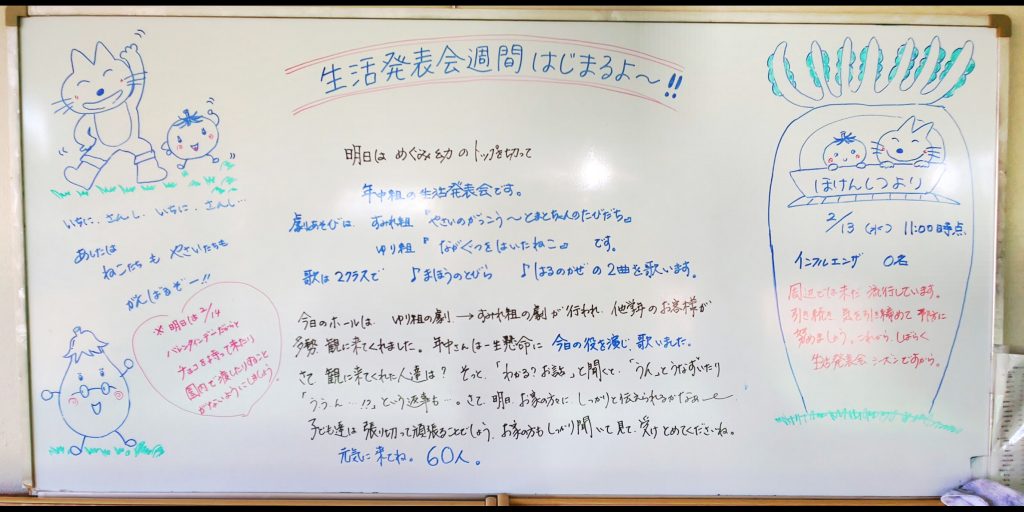 生活発表会週間はじまるよ～!!
明日は めぐみ幼のトップを切って
年中組の生活発表会です。
劇あそびは、すみれ組『やさいのがっこう～とまとちゃんのたびだち』
ゆり組『ながぐつをはいたねこ』です。
歌は2クラスで ♪まほうのとびら ♪はるのかぜ の2曲を歌います。
今日のホールは、ゆり組の劇→すみれ組の劇が行われ、他学年のお客様が
多勢 観に来てくれました。年中さんは一生懸命に 今日の役を演じ、歌いました。
さて 観に来てくれた人達は? そっと、「わかる?お話」と聞くと、「うん」とうなずいたり
「うう、ん…!?」という返事も…。さて、明日、お家の方々に しっかりと伝えられるかなぁー
子ども達は 張り切って頑張ることでしょう。お家の方もしっかり聞いて見て、受けとめてくださいね。
元気に来てね。60人。
いちに、さんし、いちに、さんし…
あしたは
ねこたちも やさいたちも
がんばるぞー!!
※明日は2/14
バレンタインデーだからと
チョコを持って来たり
園内で渡したりすること
がないようにしましょう
ほけんしつより
2/13 (水) 11:00時点
インフルエンザ 0名
周辺では未だ流行しています。
引き続き 気を引き締めて 予防に
努めましょう。これから、しばらく
生活発表会シーズンですから。